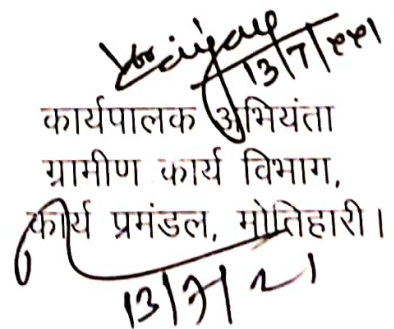 13/7/२१
कार्यपालक अभियंता
ग्रामीण कार्य विभाग,
कार्य प्रमंडल, मोतिहारी।
13/7/21